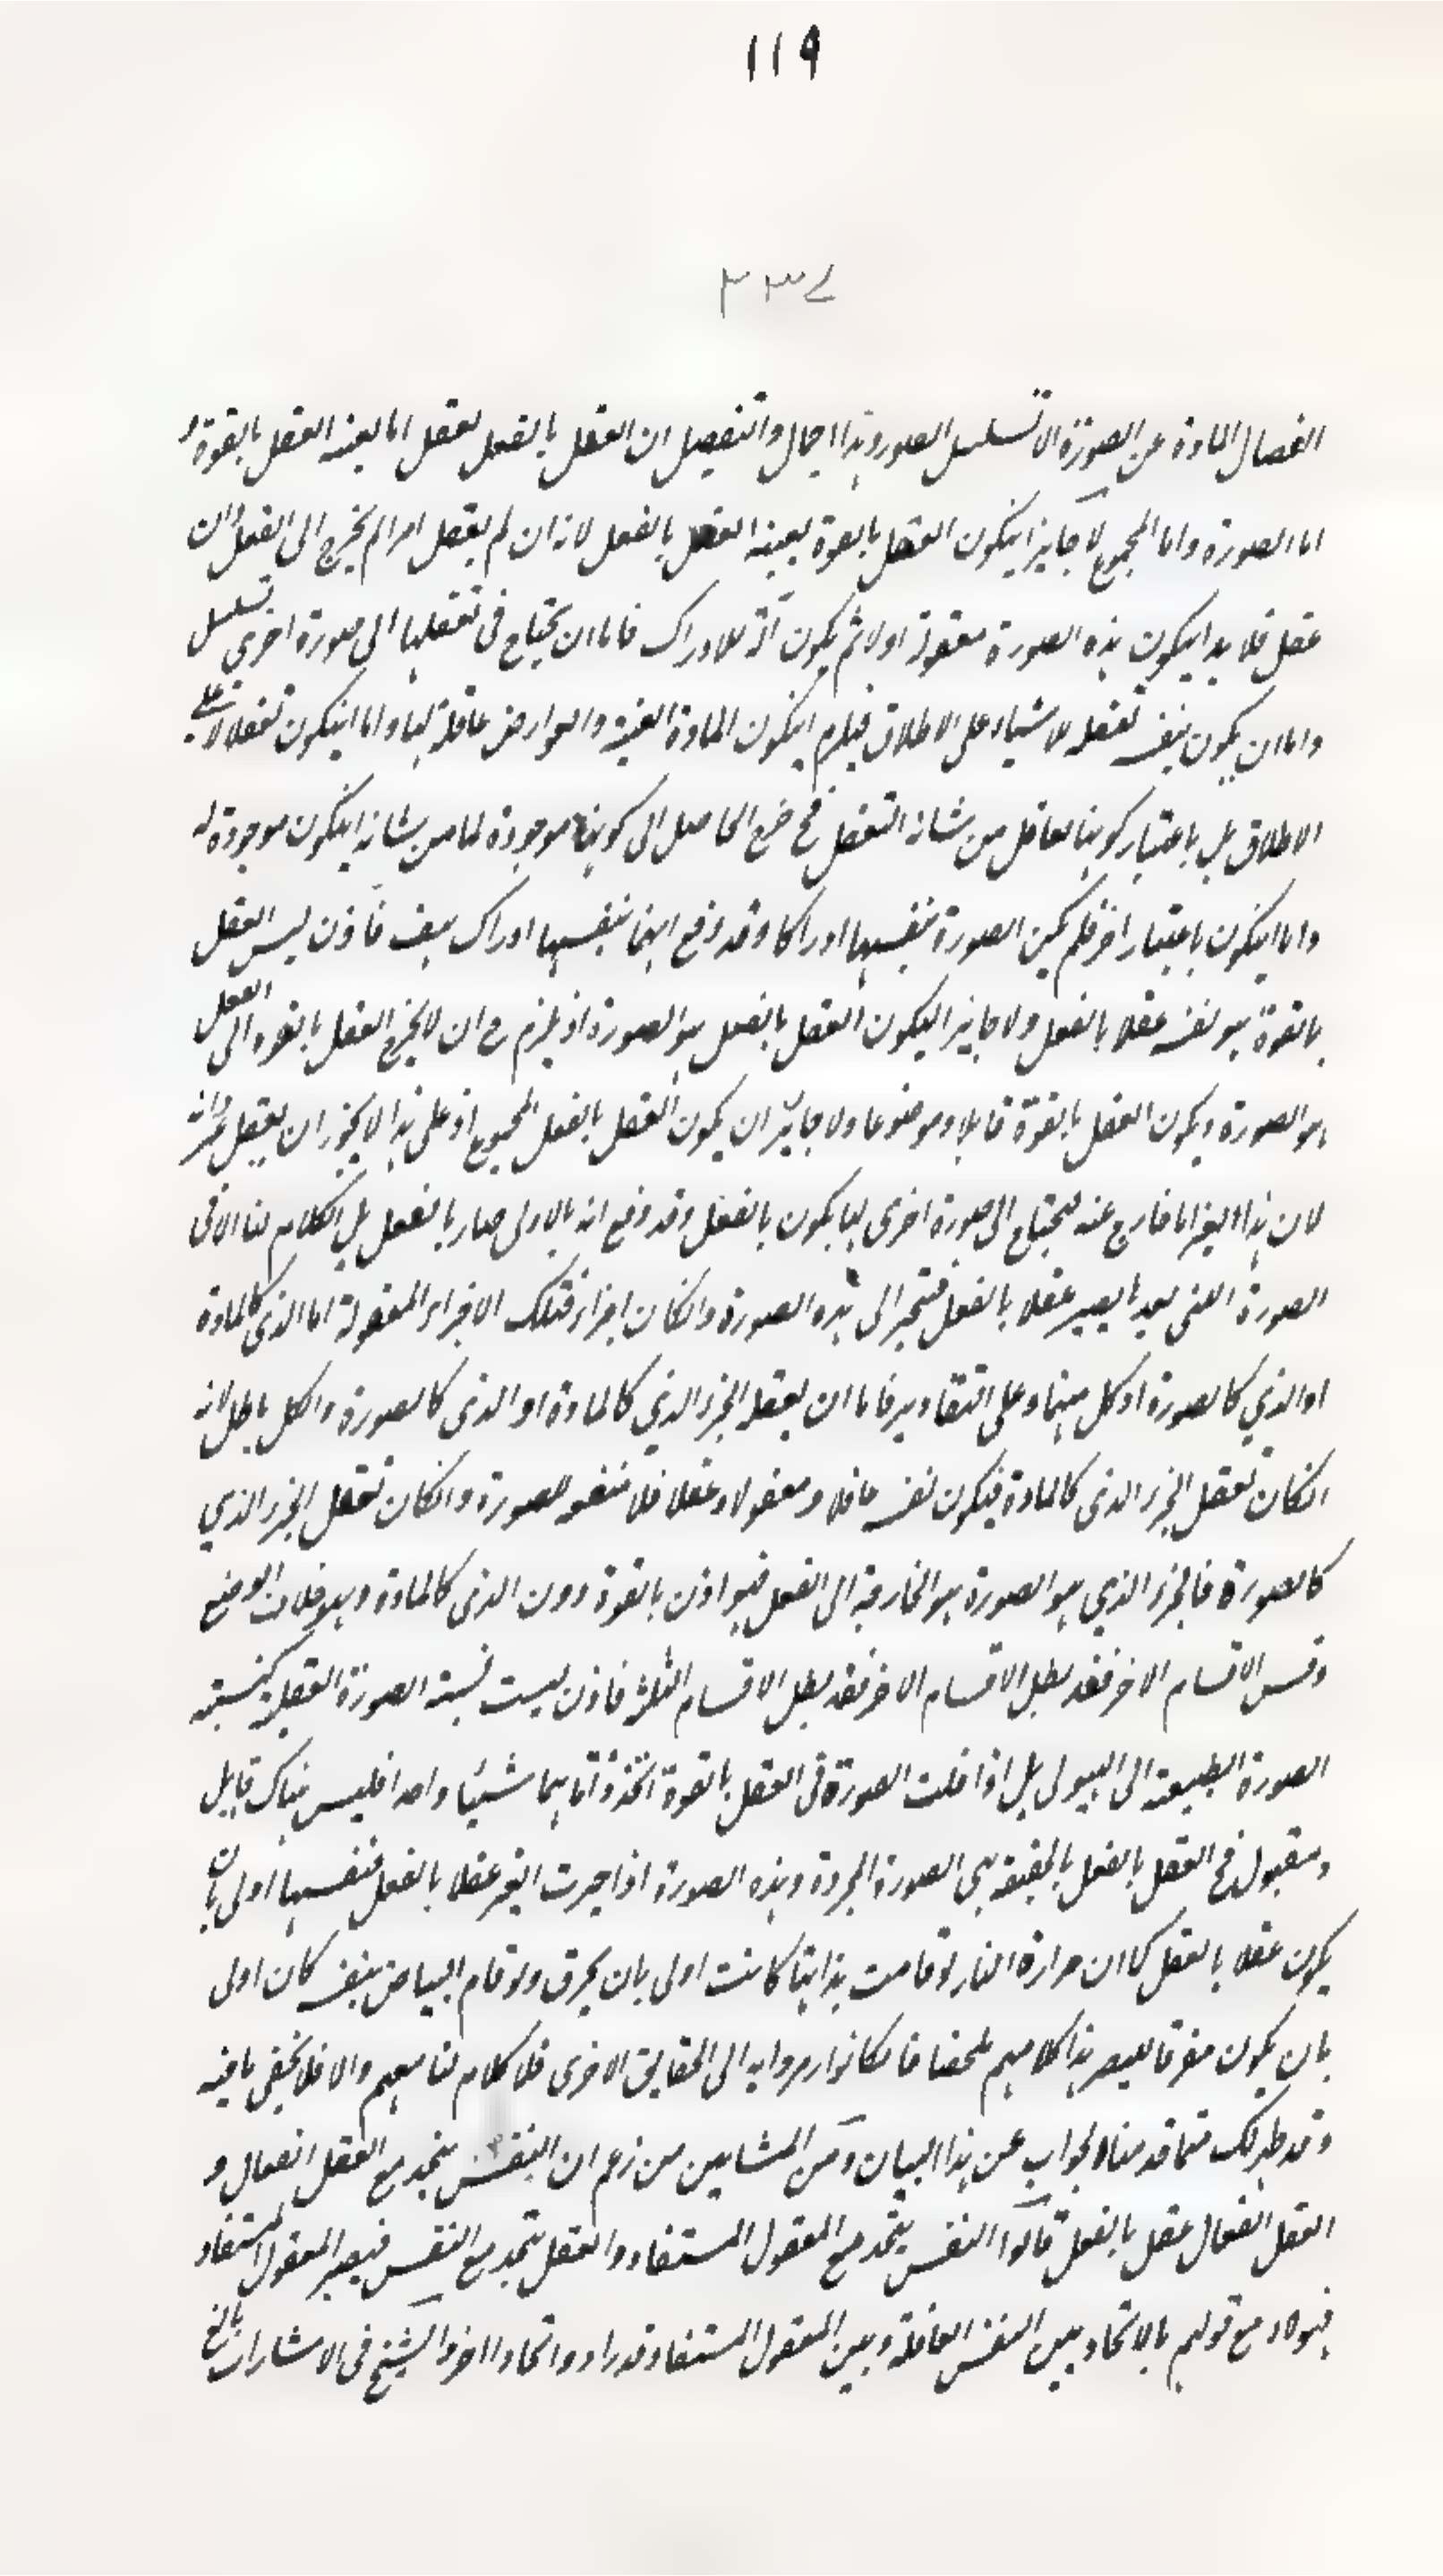 ١١٩
٢٣٧
انفصال المادة عن الصورة الا تسلسل الصور وهذا اجمال والتفصيل ان العقل بالفعل يعقل اما بعينه العقل بالقوة و
اما الصورة واما المجموع لا جايز ان يكون العقل بالقوة بعينه العقل بالفعل لانه ان لم يعقل امرا لم يخرج الى الفعل وان
عقل فلا بد ان يكون هذه الصورة معقولة اولا ثم يكون آلة للادراك فاما ان يحتاج في تعقلها الى صورة اخرى تسلسل
واما ان يكون بنفسه تعقله لاشياء على الاطلاق فيلزم ان يكون المادة الغيرية والعوارض عاقلة لها واما ان يكون تعقلا لا على
الاطلاق بل باعتبار كونها لعاقل من شانه التعقل فح رجع الحاصل الى كونها موجودة لما من شانه ان يكون موجودة له
واما ان يكون باعتبار اخر فلم يكن الصورة بنفسها ادراكا وقد وضع انها بنفسها ادراك هف فاذن ليس العقل
بالقوة هو نفسه عقلا بالفعل ولا جايز ان يكون العقل بالفعل هو الصورة اذ يلزم ح ان لا يخرج العقل بالقوة الى الفعل
هو الصورة ويكون العقل بالقوة قابلا وموضوعا ولا جايز ان يكون العقل بالفعل المجموع اذ على هذا لا يجوز ان يعقل غير ذاته
لان هذا الغير اما خارج عنه فيحتاج الى صورة اخرى بها يكون بالفعل وقد وضع انه بالاولى صار بالفعل بل الكلام لنا الا في
الصورة التي بعدها يصير عقلا بالفعل فينجر الى هذه الصورة وان كان اجزاء فتلك الاجزاء المعقولة اما الذي كالمادة
او الذي كالصورة او كل منهما وعلى التقادير فاما ان يعقله الجزء الذي كالمادة او الذي كالصورة والكل باطل لانه
ان كان تعقل الجزء الذي كالمادة فيكون نفسه عاقلا ومعقولا وعقلا فلا منفعة للصورة وان كان تعقل الجزء الذي
كالصورة فالجزء الذي هو الصورة هو الخارجة الى الفعل فهو اذن بالقوة دون الذي كالمادة وهو خلاف الوضع
وقس الاقسام الاخر فقد بطل الاقسام الاخر فقد بطل الاقسام الثلثة فاذن ليست نسبة الصورة العقلية كنسبة
الصورة الطبيعة الى الهيولى بل اذا حلت الصورة في العقل بالقوة اتحد ذاتاهما شيئا واحدا فليس هناك قابل
ومقبول فح العقل بالفعل بالحقيقة هي الصورة المجردة وهذه الصورة اذا صيرت الغير عقلا بالفعل فنفسها اولى بان
يكون عقلا بالعقل كما ان حرارة النار لو قامت بذاتها كانت اولى بان يحرق ولو قام البياض بنفسه كان اولى
بان يكون مفرقا للبصر هذا كلامهم ملخصا فان كانوا رمزوا به الى الحقايق الاخرى فلا كلام لنا معهم والا فلا يخفى ما فيه
وقد ظهر لك مما قدمنا الجواب عن هذا البيان ومن المشايين من زعم ان النفس يتحد مع العقل الفعال و
العقل الفعال عقل بالفعل قالوا النفس يتحد مع المعقول المستفاد والعقل يتحد مع النفس فيصير المعقول المستفاد
فهولاء مع قولهم بالاتحاد بين النفس العاقلة وبين المعقول المستفاد قد زادوا اتحادا اخر والشيخ في الاشارات بالغ